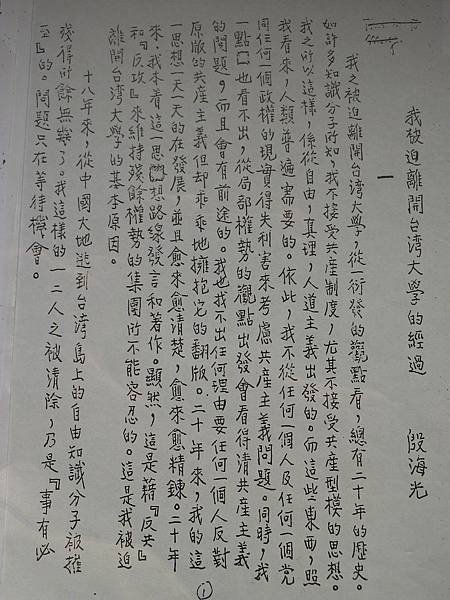 我被迫離開台湾大學的經過　殷海光
一
我之被迫離開台湾大學，從一衍發的觀點看，總有二十年的歷史。
如許多知識分子所知，我不接受共產制度，尤其不接受共產型模的思想。
我之所以這樣，係從自由，真理，人道主義出發的。而這些東西，照
我看來，人類普遍需要的。依此，我不從任何一個人及任何一個党
同任何一個政權的現實得失利害來考慮共產主義問題。同時，我
一點也看不出，從局部權勢的觀點出發會看得清共產主義
的問題，而且會有前途的。我也找不出任何理由要任何一個人反對
原版的共產主義但却乖乖地擁抱它的翻版。二十年來，我的這
一思想一天一天的在發展，並且愈來愈清楚，愈來愈精鍊。二十年
來，我本着這一思想路線發言和著作。顯然，這是藉『反共』
和『反攻』來維持殘餘權勢的集團所不能容忍的。這是我被迫
離開台湾大學的基本原因。
十八年來，從中國大地逃到台湾島上的自由知識分子被摧
殘得所餘無幾了。我這樣的一二人之被清除，乃是『事有必
至』的。問題只在等待機會。
①